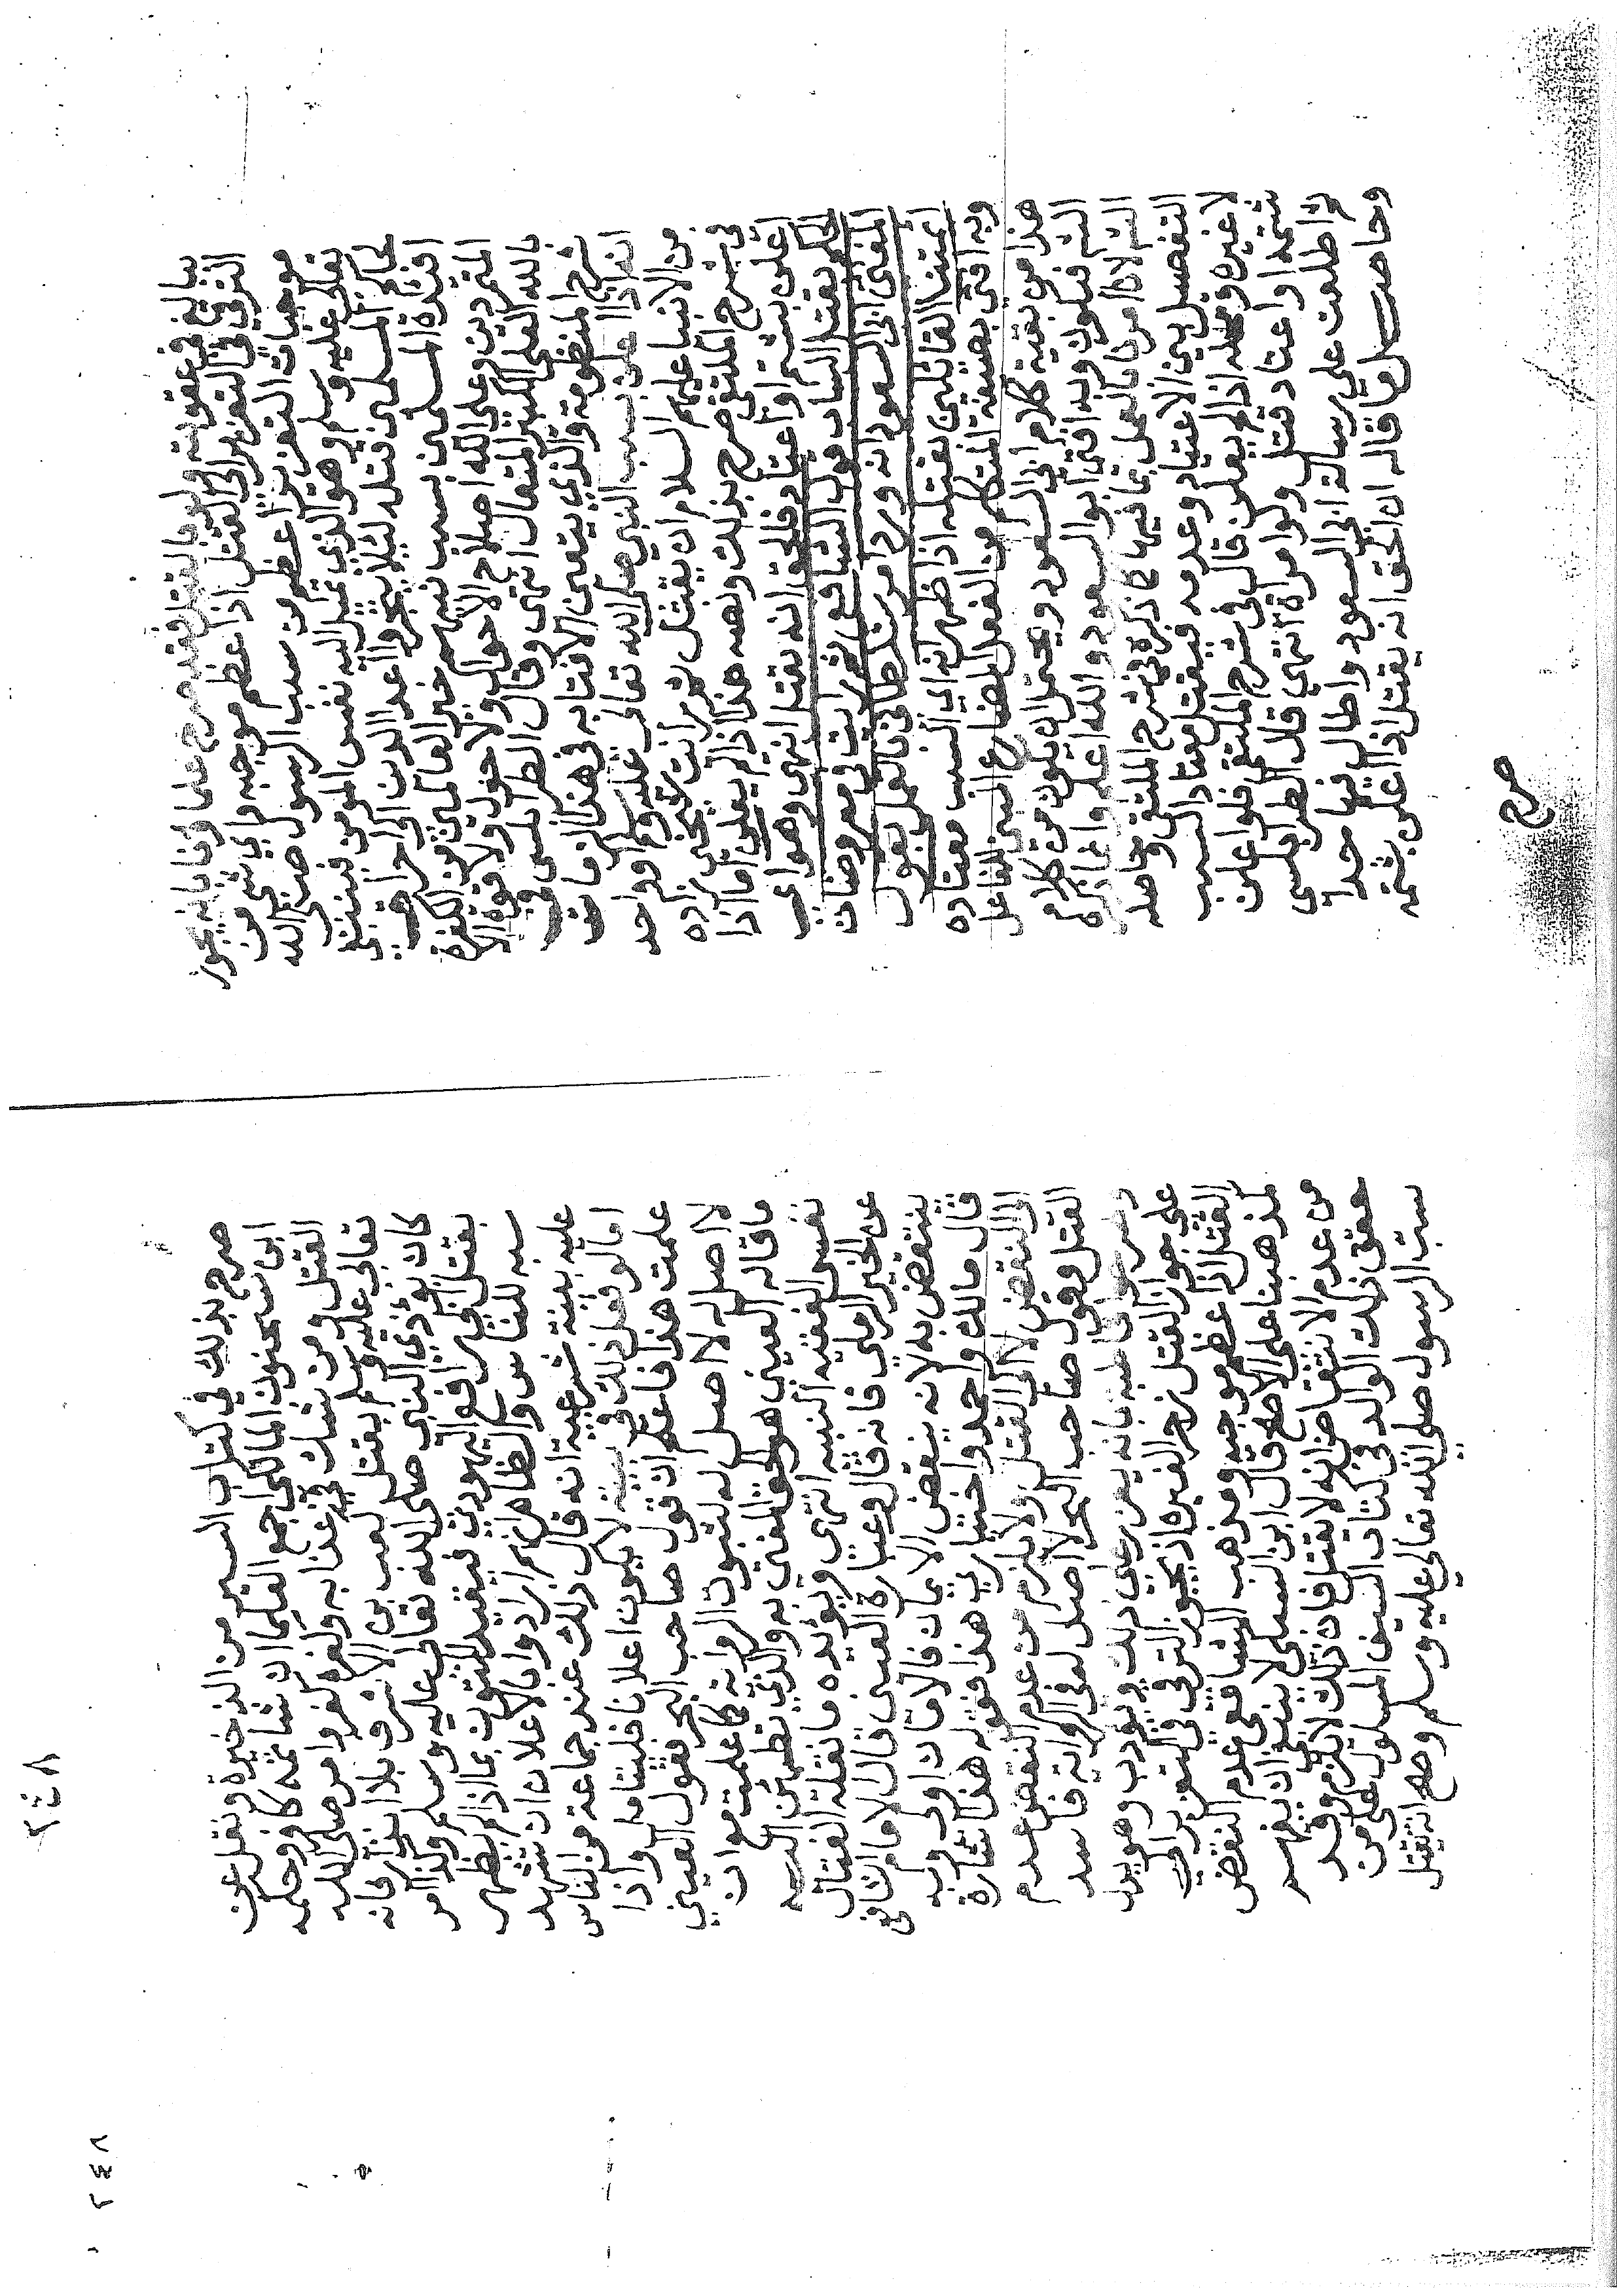 يبالغ في عقوبته ولو بالقتل فقد صرح علماؤنا بانه يجوز
الترقي في التعزير الي القتل اذا عظم موجبه واي شي من
موجبات التعزير اعظم من سب الرسول صلي الله
تعالي عليه وسلم وهو الذي تميل اليه نفس المومن فينبغي
لحاكم المسلمين قتله ليلا يتجروا اعدا الدين
افئدة المسلمين بسب نبيهم خير العالمين من الكفرة
المتمردين وعلي الله اصلاح الاحوال ولا حول ولا قوة الا
بالله العلي الكبير المتعال انتهي وقال الطرابلسي في
شرح المنظومة والذي يتعين الافتا به في هذا الزمان
انه اذا اعلن بسب النبي صلي الله تعالي عليه وسلم او واحد
من الانبيا عليهم السلام ان يقتل ثم رايت شيخي زاده
في شرح الملتقي صرح بذلك ونصه هذا اذا لم يعلن اما اذا
اعلن بشتم او اعتاد فالحق انه يقتل انتهي وهو اي
الحكم بقتل الساب قول الشافعي ثم رايت في معروضات
المفتي ابي السعود انه ورد امر سلطاني بالعمل بقول
ائمتنا القائلين بقتله اذا ظهر انه اي السب معتاده
وبه افتي بصيغة المتكلم من الفعل المضارع المبني للفاعل
هذا من بقية كلام ابي السعود ويحتمل ان يكون من كلام
الشه فيكون وبه افتي ابو السعود والله اعلم وانما ذكره
الشه لانا امرنا بالعمل بما فيها كما ذكره في شرح الملتقي وحاصله
التفصيل بين الاعتياد وعدمه فيقتل معتاد السب
لا غيره ومحله اذا لم يعلن قال في شرح الملتقي فلو اعلن
بشتمه او اعتاد قتل ولو امراة انتهي قال الطرابلسي
ثم اطلعت علي رسالة ابي السعود واطال فيها جدا
وحاصل ما قاله ان الحق انه يقتل اذا اعلن بشتمه
صرح
٢٤٨
٢٤٨
صرح بذلك في كتاب السير من الذخيرة ونقل عن
ابن سحنون المالكي اجمع العلما ان شاتمه كافر وحكمه
القتل ومن شك في عذابه وكفره كفر وامر صلي الله
تعالي عليه وسلم بقتل كعب بن الاشرف بلا انذار فانه
كان يؤذي النبي صلي الله تعالي عليه وسلم وكذا امر
بقتل ابي رافع اليهودي فيقيد المتون بما اذا لم يظهر
سبه للناس والظاهر انهم ارادوا بالاعلان ان تشهد
عليه بينة شرعية انه قال ذلك عند جماعة من الناس
اما لو فعل ذلك في بيته لا يكون اعلانا فليتامل واذا
علمت هذا فاعلم ان قول صاحب البحر فقول العيني
لا اصل له لا اصل له لثبوت الرواية كما علمت مع ان
ما قاله العيني هو الحق المفتي به والذي تطمئن اليه
نفس الفقيه النبيه انتهي ويؤيده ما نقله الفتال
عن الخير الرملي فانه قال وعبارة العيني قال الامام الشافعي
ينتقض به لانه ينقض الايمان فالامان اولي وبه
قال مالك واحمد واختياري هذا فقوله هذا اشارة
الي النقض لا الي القتل ولا يلزم من عدم النقض عدم
القتل وقول صاحب البحر لا اصل له في الرواية فاسد
اذ صرحوا قاطبة بانه يعزر علي ذلك ويؤدب وهو يدل
علي جواز القتل زجرا لغيره اذ يجوز الترقي في التعزير الي
القتل اذا عظم موجبه ومذهب الشافعي عدم النقض
كمذهبنا علي الاصح قال ابن السبكي لا ينبغي ان يفهم
من عدم الانتقاض انه لا يقتل فان ذلك لا يلزم وقد
حقق ذلك الوالد في كتاب السيف المسلول علي من
سب الرسول صلي الله تعالي عليه وسلم وصحح انه يقتل